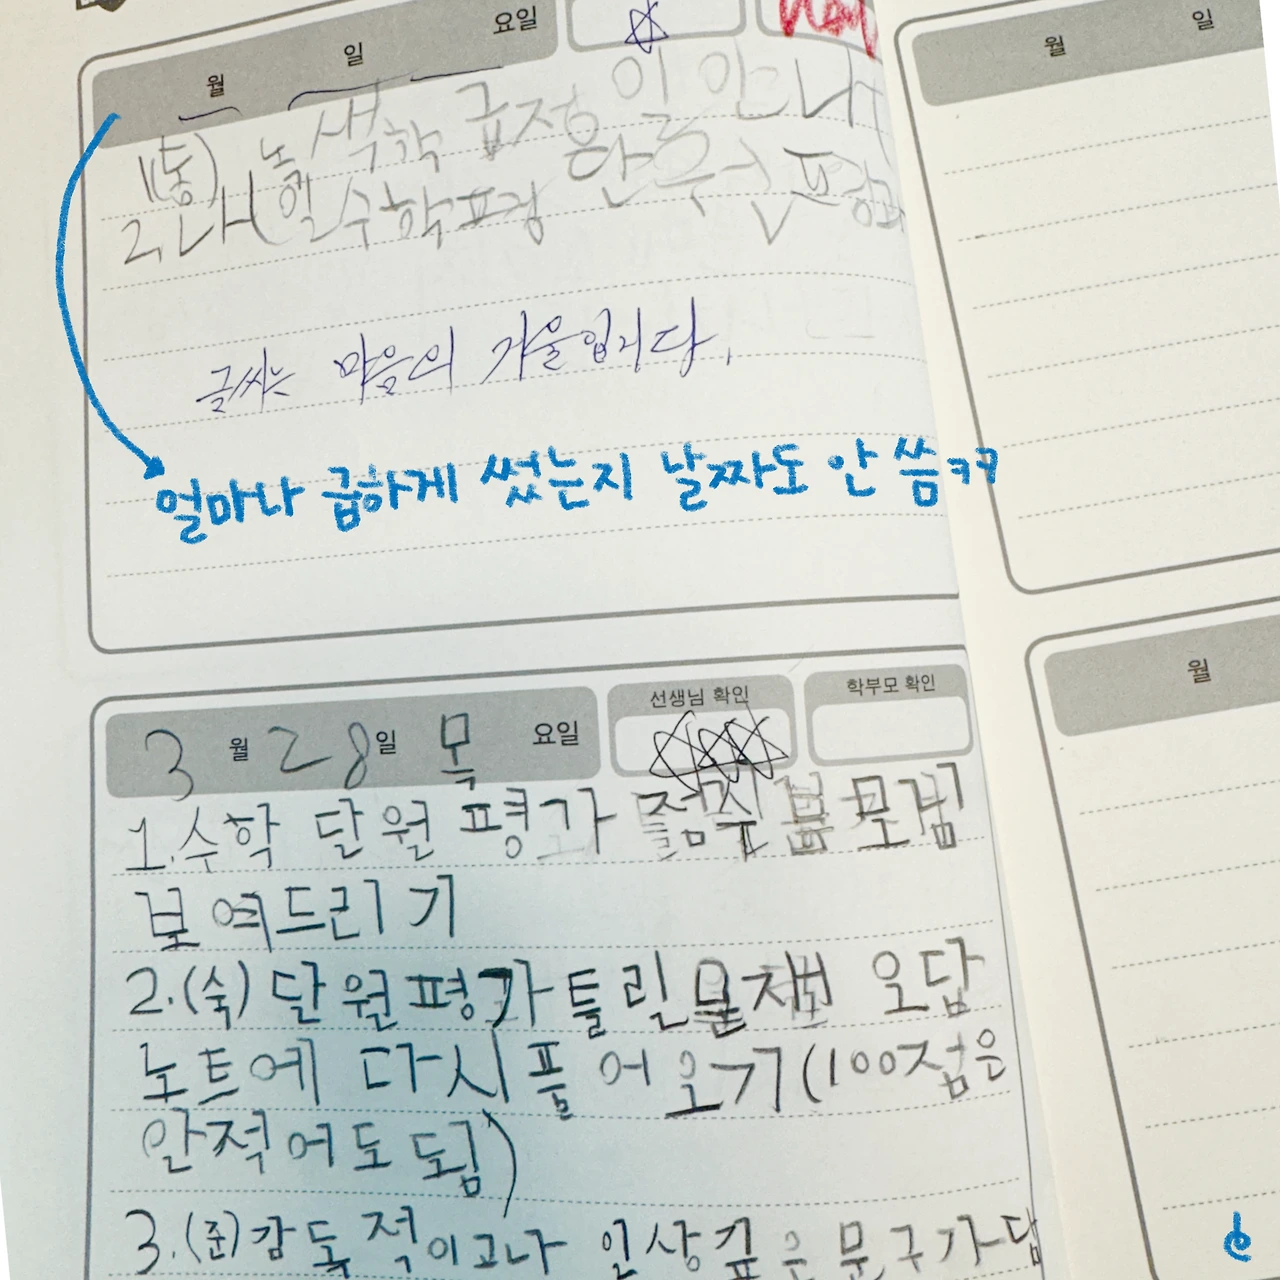 월 일 요일
1(통) 색학 급정이 안나
2. 나(내일 수학평 단원 평가
글씨는 마음의 거울입니다.
얼마나 급하게 썼는지 날짜도 안 씀ㅋㅋ
월 일
3월 28일 목요일
선생님 확인
학부모 확인
1. 수학 단원 평가 점수 부모님
보여드리기
2.(숙) 단원평가 틀린 문제 오답
노트에 다시 풀어오기(100점은
안적어도 됨)
3.(준) 감동적이고나 인상깊은 문구가
월